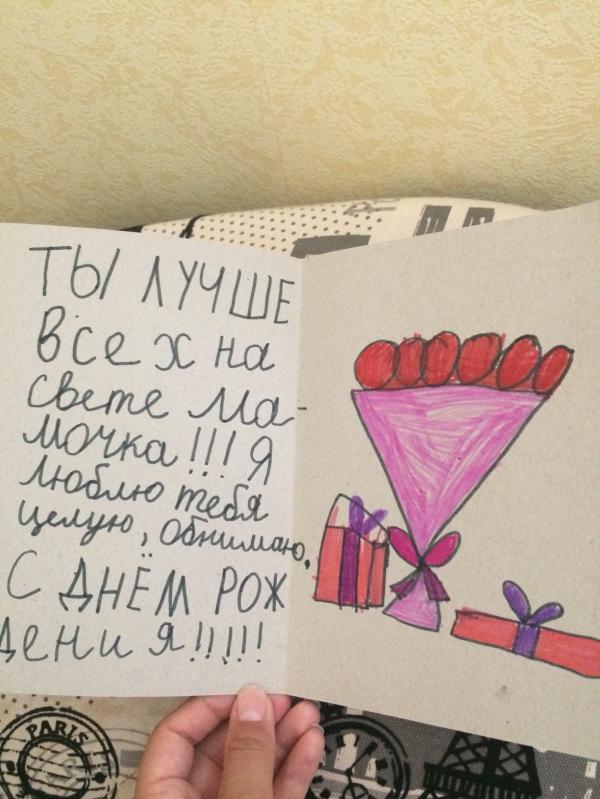 ТЫ ЛУЧШЕ
Всех на
свете ма-
мочка!!! Я
люблю тебя
целую, обнимаю,
С ДНЁМ РОЖ
дения!!!!!
PARIS